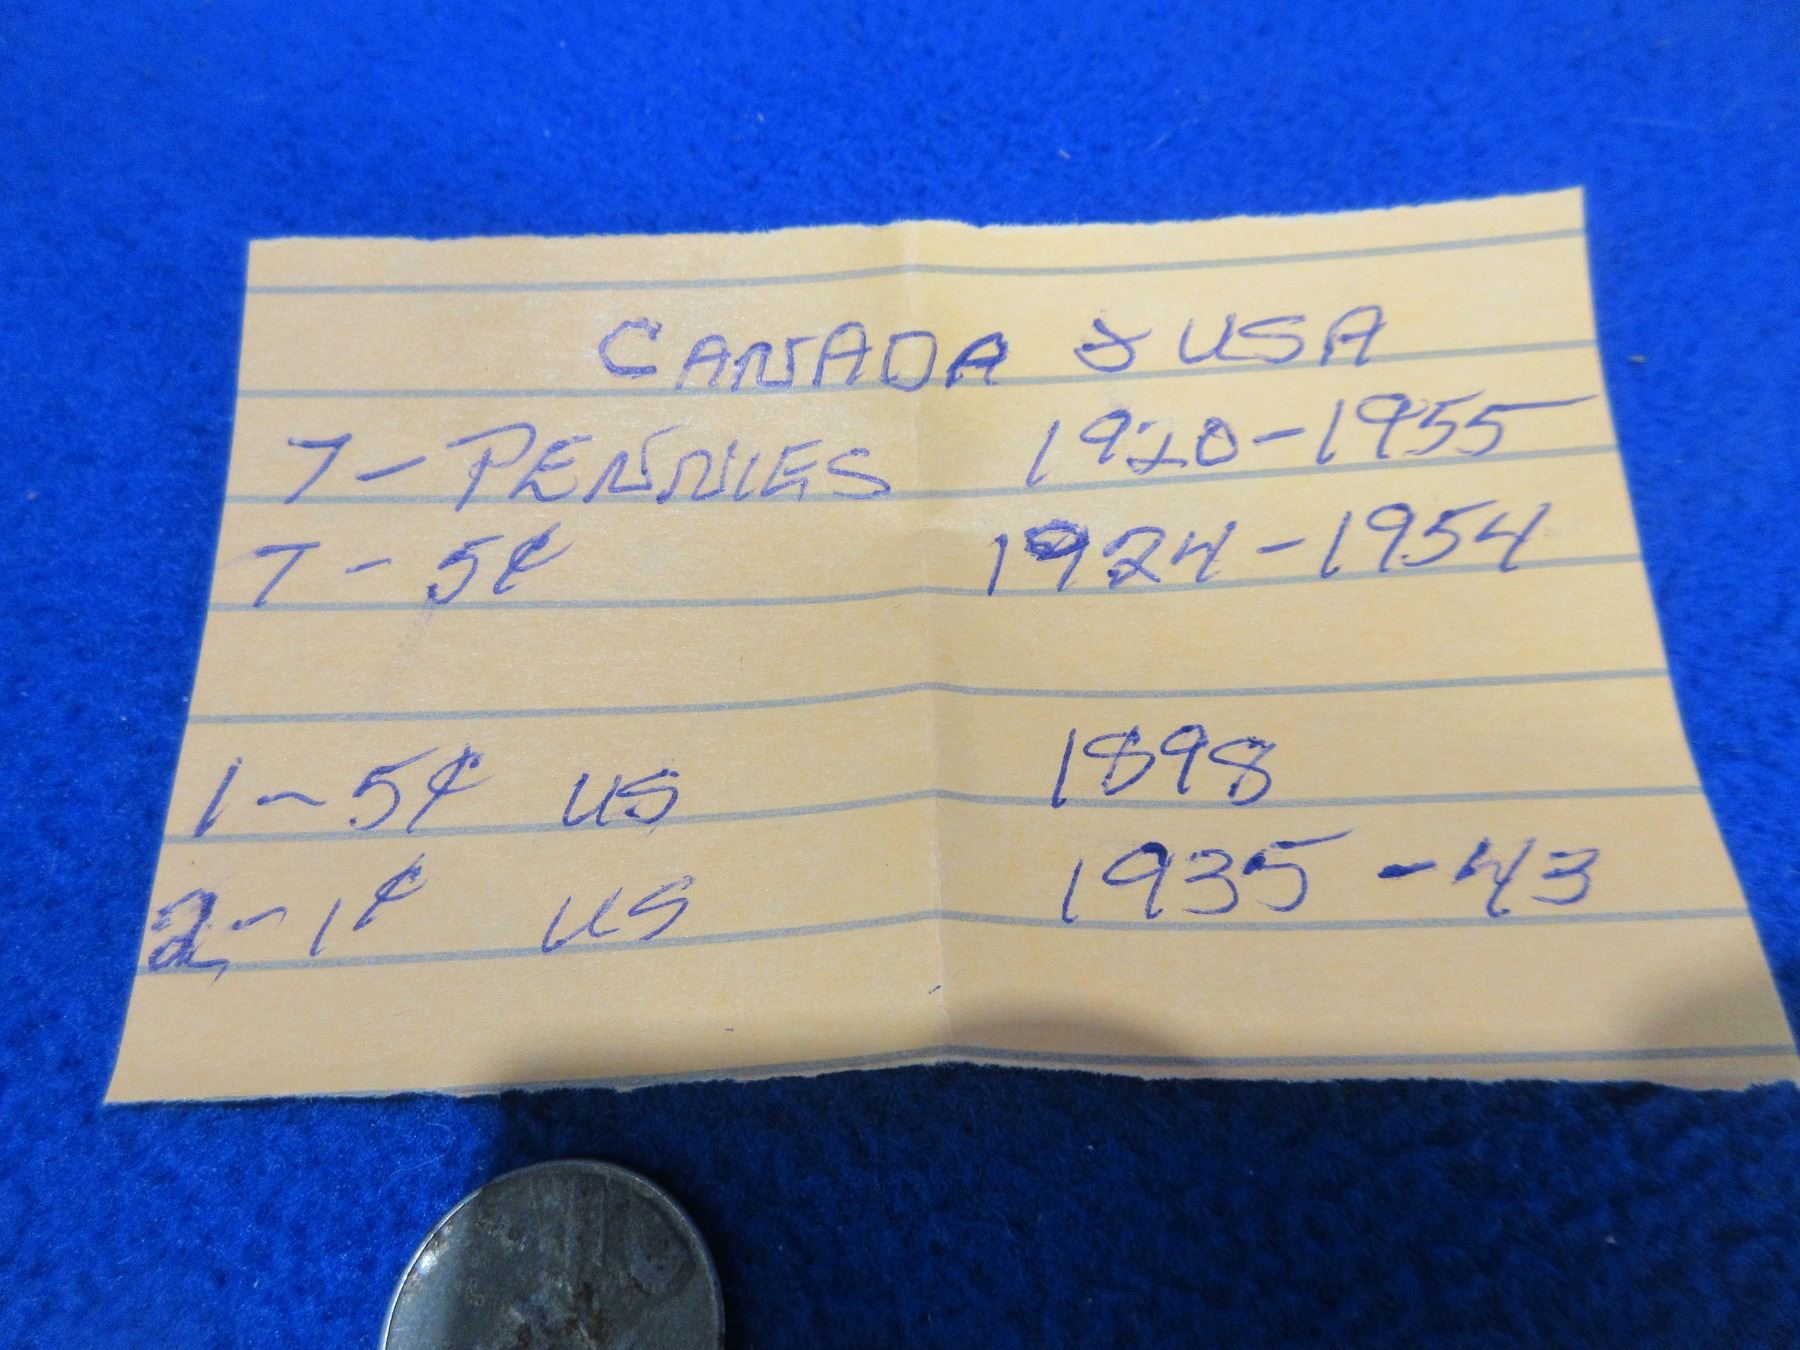 CANADA & USA
7 - PENNIES 1920 - 1955
7 - 5¢ 1924 - 1954
1 - 5¢ US 1898
2 - 1¢ US 1935 - 43